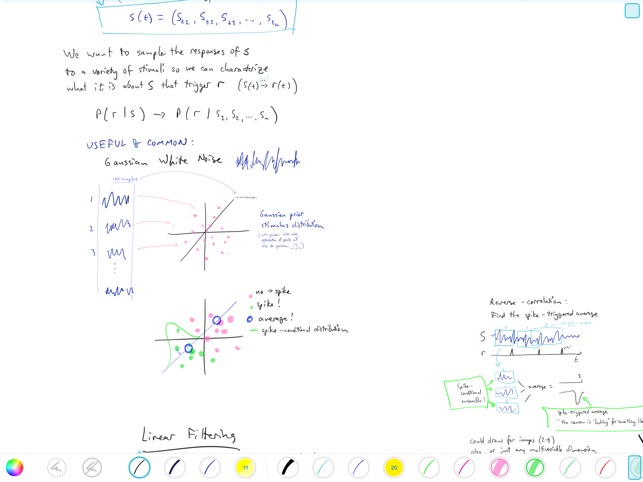 S(t) = (S_t1, S_t2, S_t3, ..., S_tn)
We want to sample the responses of S
to a variety of stimuli so we can characterize
what it is about S that trigger r (S(t) → r(t))
P(r | S) → P(r | S1, S2, ..., Sn)
USEFUL & COMMON:
Gaussian White Noise
1
2
3
Gaussian prior
stimulus distribution
no → spike
spike!
average!
spike-conditional distribution
Linear Filtering
Reverse-correlation:
Find the spike-triggered average
S
r
t
Spike-
conditional
ensemble!
average =
spike-triggered average
"the neuron is "looking" for something like
could draw for images (2-d)
also, or just any multivariable dimension
11
20